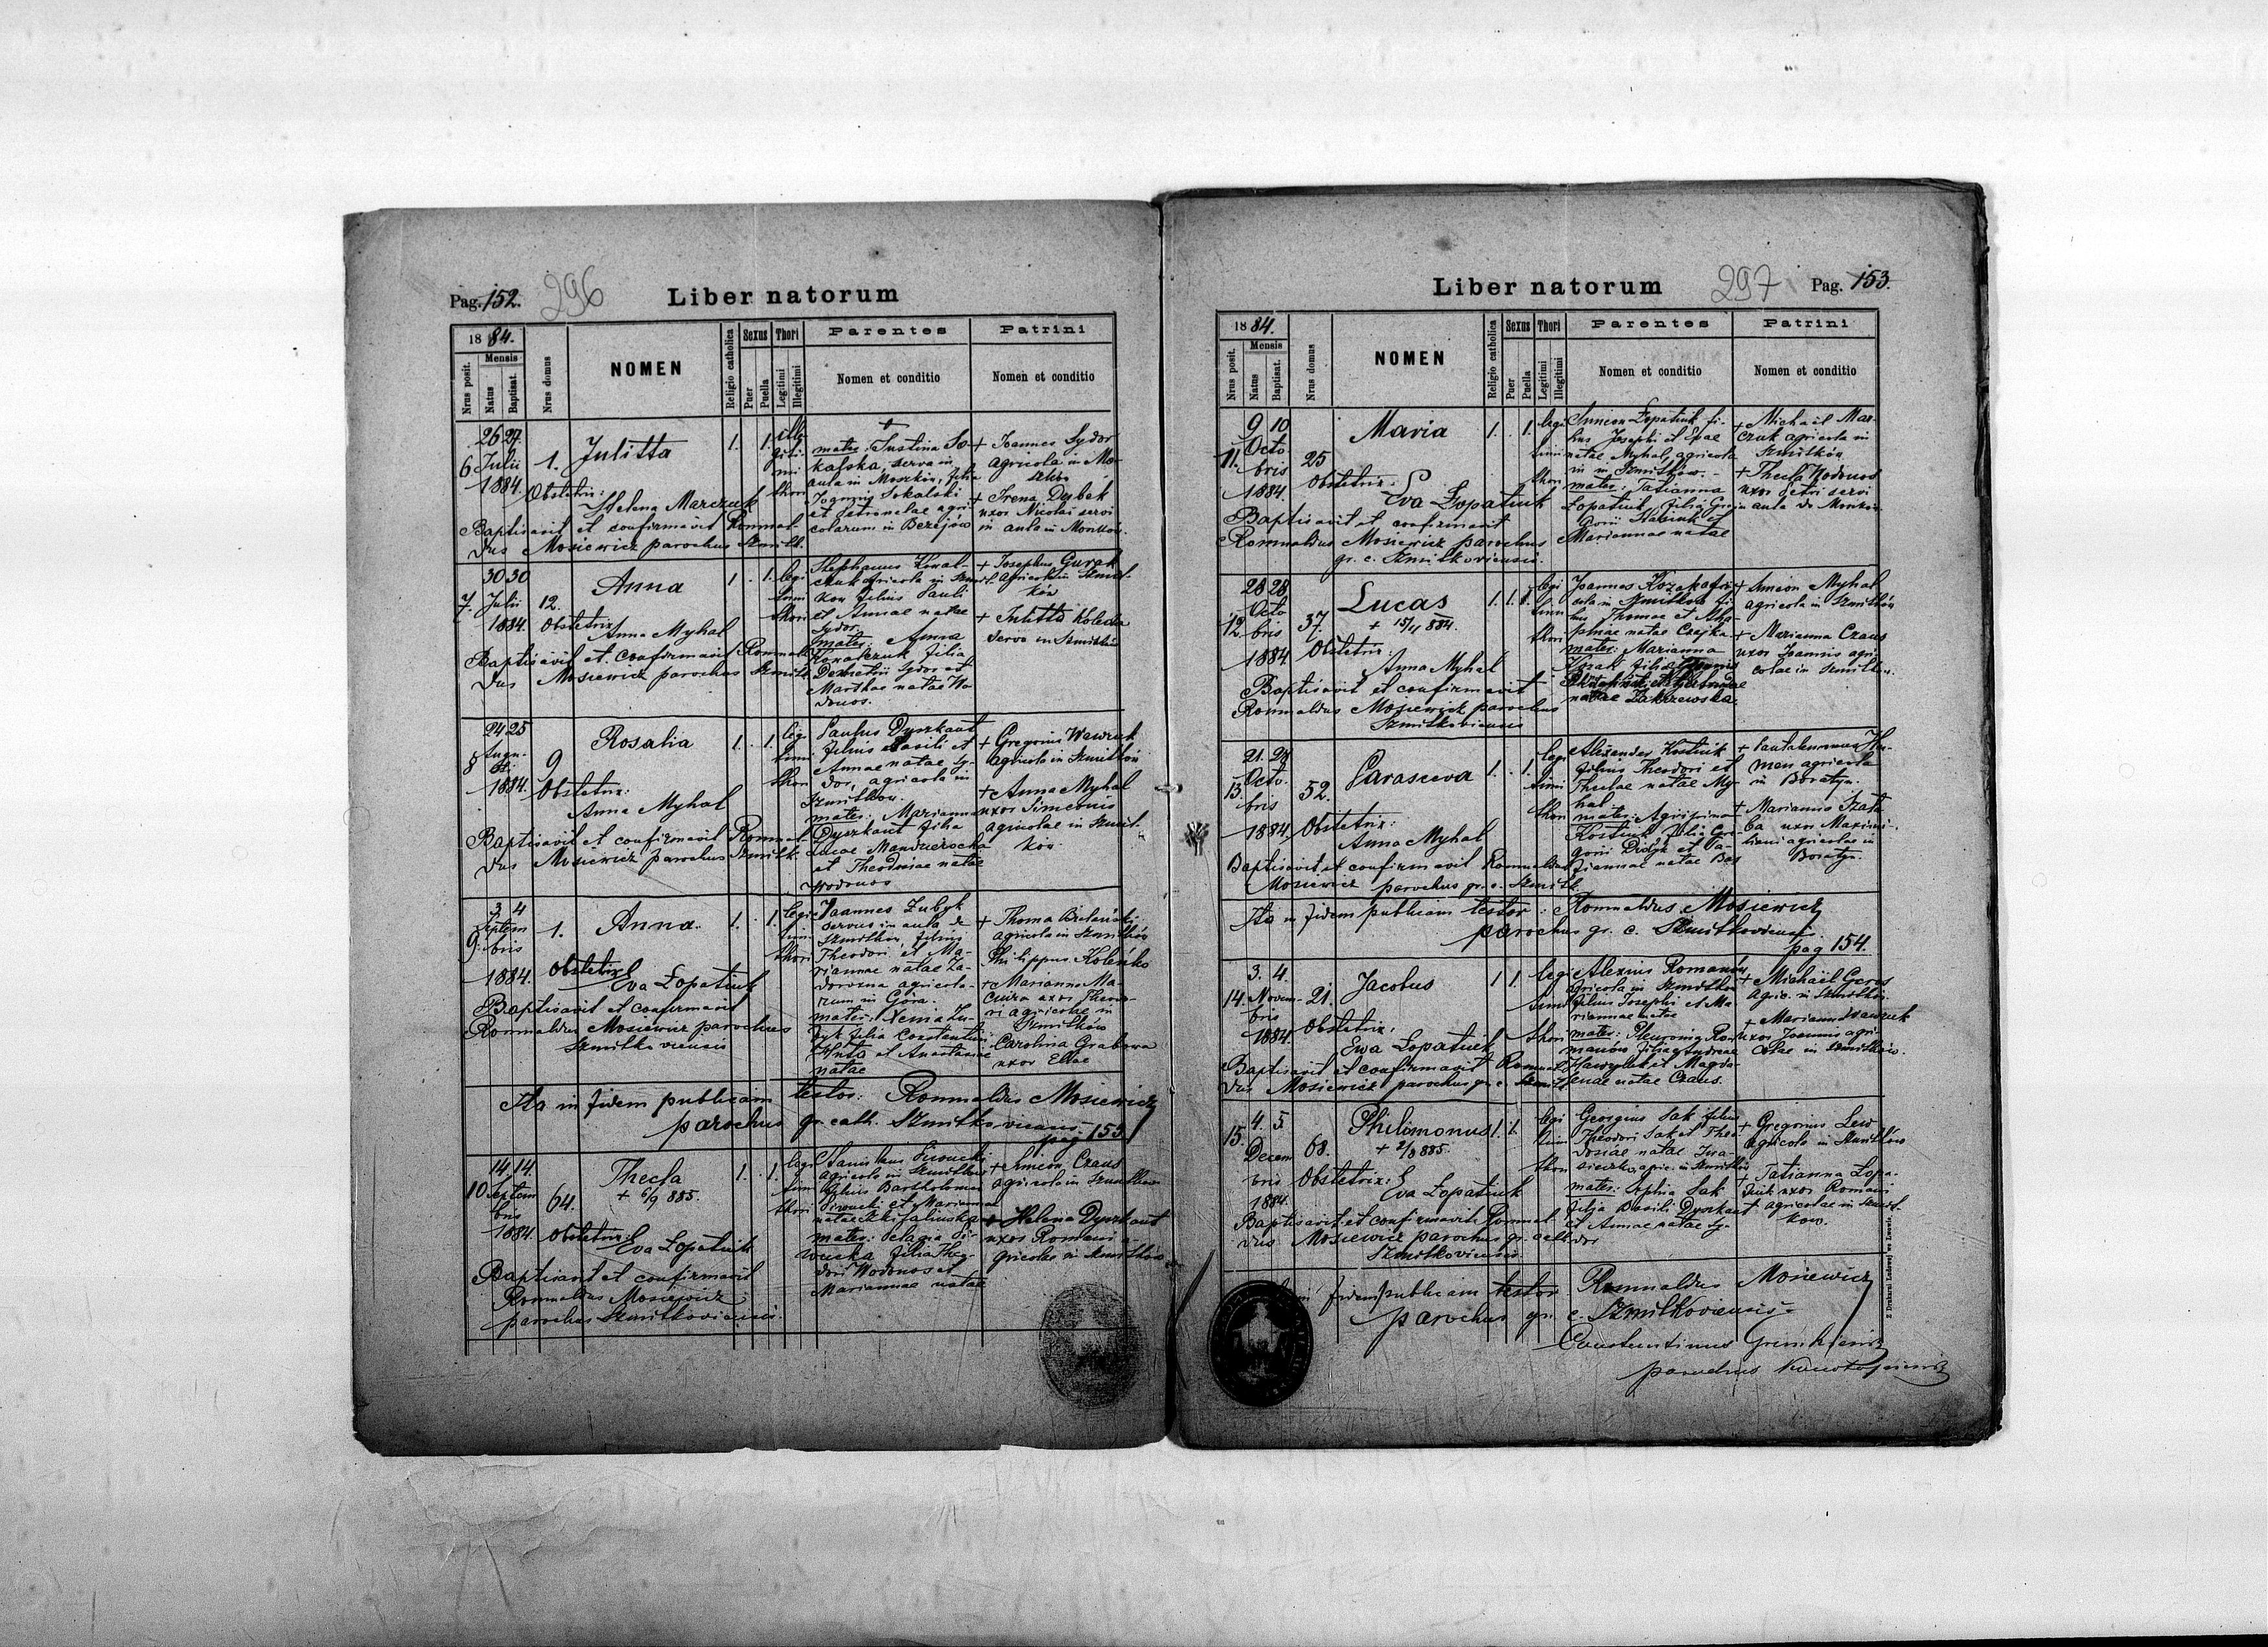 Pag. 152. 296 Liber natorum
1884.
Nrus posit.
Mensis
Natus
Baptisat.
Nrus domus
NOMEN
Religio catholica
Sexus
Puer
Puella
Thori
Legitimi
Illegitimi
Parentes
Nomen et conditio
Patrini
Nomen et conditio
6 26 27 Julii 1884. 1. Julitta 1. 1. illegitimi thori
Obstetrix:
Helena Marczuk
Baptisavit et confirmavit Romual-
dus Mosiewicz parochus Szmitk.
mater: Justina So-
kalska, serva in
aula in Moszków, filia
Sokalski
et Petronelae agri-
colarum in Bezejów
+ Joannes Sydor
agricola in
+ Irena Dubek
uxor Nicolai servi
in aula in Moszków.
7. 30 30 Julii 1884. 12. Anna 1 1. legitimi thori
Obstetrix
Anna Myhal
Baptisavit et confirmavit Romual-
dus Mosiewicz parochus Szmitk.
Stephanus Kowal-
czuk agricola in Szmit-
kow filius Pauli
et Annae natae
Sydor.
mater: Anna
Kowalczuk filia
Demetrii Sydor et
Marthae natae Wo-
donos.
+ Josephus Gurak
agricola in Szmit-
ków
+ Julitta Kolecka
serva in Szmitków
8 24 25 Augusti 1884. 9 Rosalia 1. 1. legitimi thori
Obstetrix:
Anna Myhal
Baptisavit et confirmavit Romual-
dus Mosiewicz parochus Szmitk.
Paulus Dyszkant
filius Basili et
Annae natae Sy-
dor, agricola in
Szmitkow.
mater: Marianna
Dyszkant filia
Lucae
et Theodosiae natae
Wodonos
+ Gregorius Wawruk
agricola in Szmitków
+ Anna Myhal
uxor Simeonis
agricolae in Szmit-
kow.
9. 3 4 Septembris 1884. 1. Anna. 1. 1. legitimi thori
Obstetrix
Eva Łopatiuk
Baptisavit et confirmavit
Romualdus Mosiewicz parochus
Szmitkoviensis
Joannes Zubyk
servus in aula de
Szmitków, filius
Theodori et Ma-
riannae natae Za-
agricola-
rum in Góra.
mater: Xenia Zu-
byk filia Constantini
et Anastasiae
natae
+ Thoma
agricola in Szmitków
Philippus Kolenko
+ Marianna Ma-
uxor Theodo-
ri agricolae in
Szmitków
Carolina Grabowa
uxor Eliae
Ita in fidem publicam testor: Romualdus Mosiewicz
parochus gr. cath. Szmitkoviensis
pag 153
10 14 14. Septembris 1884. 64. Thecla 1. 1. legitimi thori
+ 6/9 885.
Obstetrix:
Eva Łopatiuk
Baptisavit et confirmavit
Romualdus Mosiewicz
parochus Szmitkoviensis.
agricola in Szmitków
filius Bartholomei
et Mariannae
natae
mater: Pelagia
filia Theo-
dori Wodonos et
Mariannae natae
+ Simeon Czaus
agricola in Szmitkow
+ Helena Dyszkant
uxor Romani a-
gricolae in Szmitków
Liber natorum 297 Pag. 153.
1884.
Nrus posit.
Mensis
Natus
Baptisat.
Nrus domus
NOMEN
Religio catholica
Sexus
Puer
Puella
Thori
Legitimi
Illegitimi
Parentes
Nomen et conditio
Patrini
Nomen et conditio
11. 9 10 Octobris 1884. 25 Maria 1. 1. legitimi thori
Obstetrix:
Eva Łopatiuk
Baptisavit et confirmavit
Romualdus Mosiewicz parochus
gr. c. Szmitkoviensis.
Simeon Łopatiuk fi-
lius Josephi et Evae
natae Myhal, agricola
in Szmitków.
mater: Tatianna
Łopatiuk, filia Gre-
gorii et
Mariannae natae
+ Michael Mar-
czuk agricola in
Szmitków
+ Thecla Wodonos
uxor Petri servi
in aula de Moszków.
12. 28 28 Octobris 1884. 37. Lucas 1. 1. legitimi thori
+ 15/11 884.
Obstetrix:
Anna Myhal
Baptisavit et confirmavit
Romualdus Mosiewicz parochus
Szmitkoviensis
Joannes Kozak agri-
cola in Szmitków fi-
lius Thomae et
natae Czejka.
mater: Marianna
Kozak filia
natae Zakrzewska.
+ Simeon Myhal
agricola in Szmitków
+ Marianna Czaus
uxor Joannis agri-
colae in Szmitkow.
13. 21. 28 Octobris 1884. 52. Parasceva 1. 1. legitimi thori
Obstetrix:
Anna Myhal
Baptisavit et confirmavit Romualdus
Mosiewicz parochus gr. c. Szmitk.
Alexander Kostiuk
filius Theodori et
Theclae natae My-
hal
mater: Agripina
Kostiuk filia Gre-
gorii Dudyk et Ta-
tiannae natae Bas
+ Pantaleimon Hu-
men agricola
in Boratyn.
+ Marianna Szata-
ba uxor Maximi-
liani agricolae in
Boratyn.
Ita in fidem publicam testor: Romualdus Mosiewicz
parochus gr. c. Szmitkoviensis.
pag 154.
14. 3. 4. Novembris 1884. 21. Jacobus 1 1. legitimi thori
Obstetrix:
Ewa Łopatiuk
Baptisavit et confirmavit Romual-
dus Mosiewicz parochus gr. c. Szmitk.
Alexius Romanów
agricola in Szmitków
filius Josephi et Ma-
riannae natae
mater: Ro-
manów filia Andreae
Hawryluk et Magda-
lenae natae Czaus.
+ Michaël Geros
agric. in Szmitków.
+ Marianna Wawruk
uxor Joannis agri-
colae in Szmitków.
15. 4. 5. Decembris 1884. 68. Philimonus 1. 1. legitimi thori
+ 2/8 885.
Obstetrix:
Eva Łopatiuk
Baptisavit et confirmavit Romual-
dus Mosiewicz parochus gr. cath.
Szmitkoviensis.
Georgius Sak filius
Theodori Sak et Theo-
dosiae natae
agric. in Szmitków
mater: Sophia Sak
filia Basili Dyszkant
et Annae natae Sy-
dor
+ Gregorius Lew
agricola in Szmitków
+ Tatianna Łopa-
tiuk uxor Romani
agricolae in Szmit-
kow.
in fidem publicam testor Romualdus Mosiewicz
parochus gr. c. Szmitkoviensis
Constantinus
parochus
Z Drukarni Ludowej we Lwowie.